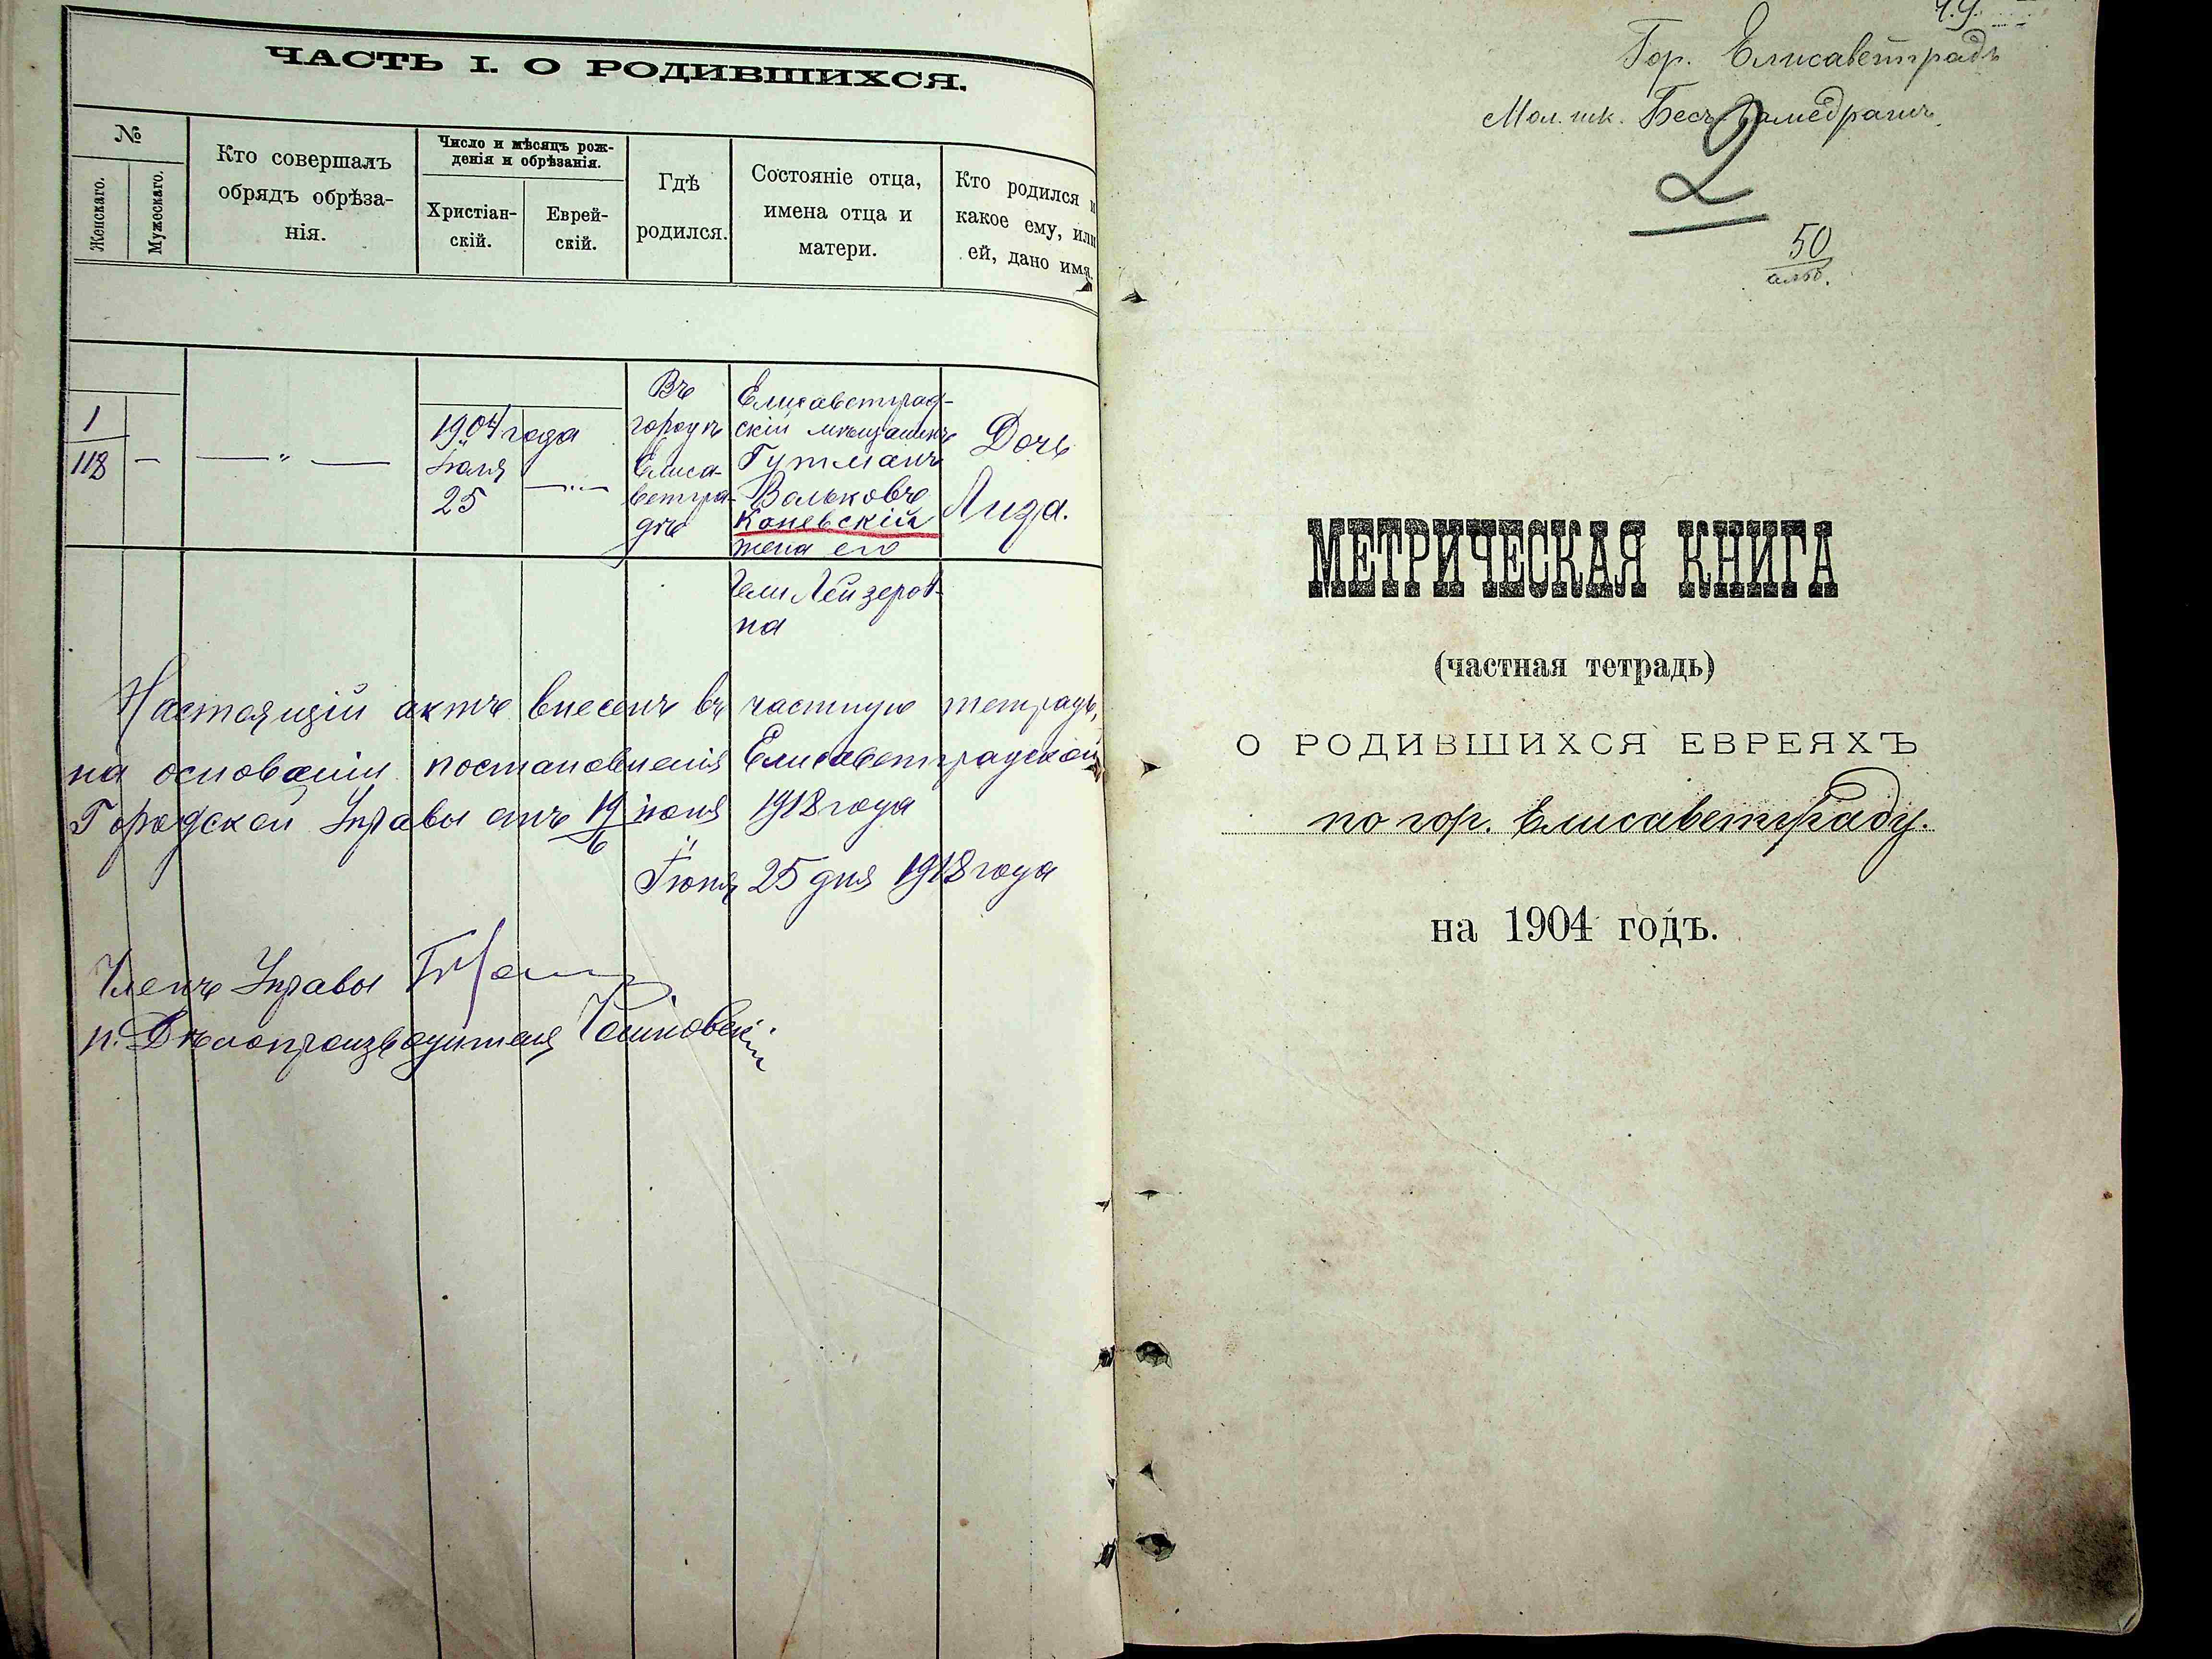 ЧАСТЬ I. О РОДИВШИХСЯ.
№
Женскаго.
Мужескаго.
Кто совершалъ
обрядъ обрѣза-
нія.
Число и мѣсяцъ рож-
денія и обрѣзанія.
Христіан-
скій.
Еврей-
скій.
Гдѣ
родился.
Состояніе отца,
имена отца и
матери.
Кто родился и
какое ему, или
ей, дано имя.
1
118
—
— " —
1904 года
Іюля
25
— " —
Въ
городѣ
Елиса-
ветгра-
дѣ
Елисаветград-
скій мѣщанинъ
Гутманъ
Вольковъ
Каневскій
жена его
Лейзеров-
на
Дочь
Лида.
Настоящій актъ внесенъ въ частную тетрадь,
на основаніи постановленія Елисаветградской
Городской Управы отъ 19/6 іюня 1918 года
Іюня 25 дня 1918 года
Членъ Управы
и. Дѣлопроизводителя
Гор. Елисаветградъ
Мол. шк. Бесъ-Гамедрашъ
2
50
МЕТРИЧЕСКАЯ КНИГА
(частная тетрадь)
О РОДИВШИХСЯ ЕВРЕЯХЪ
по гор. Елисаветграду.
на 1904 годъ.